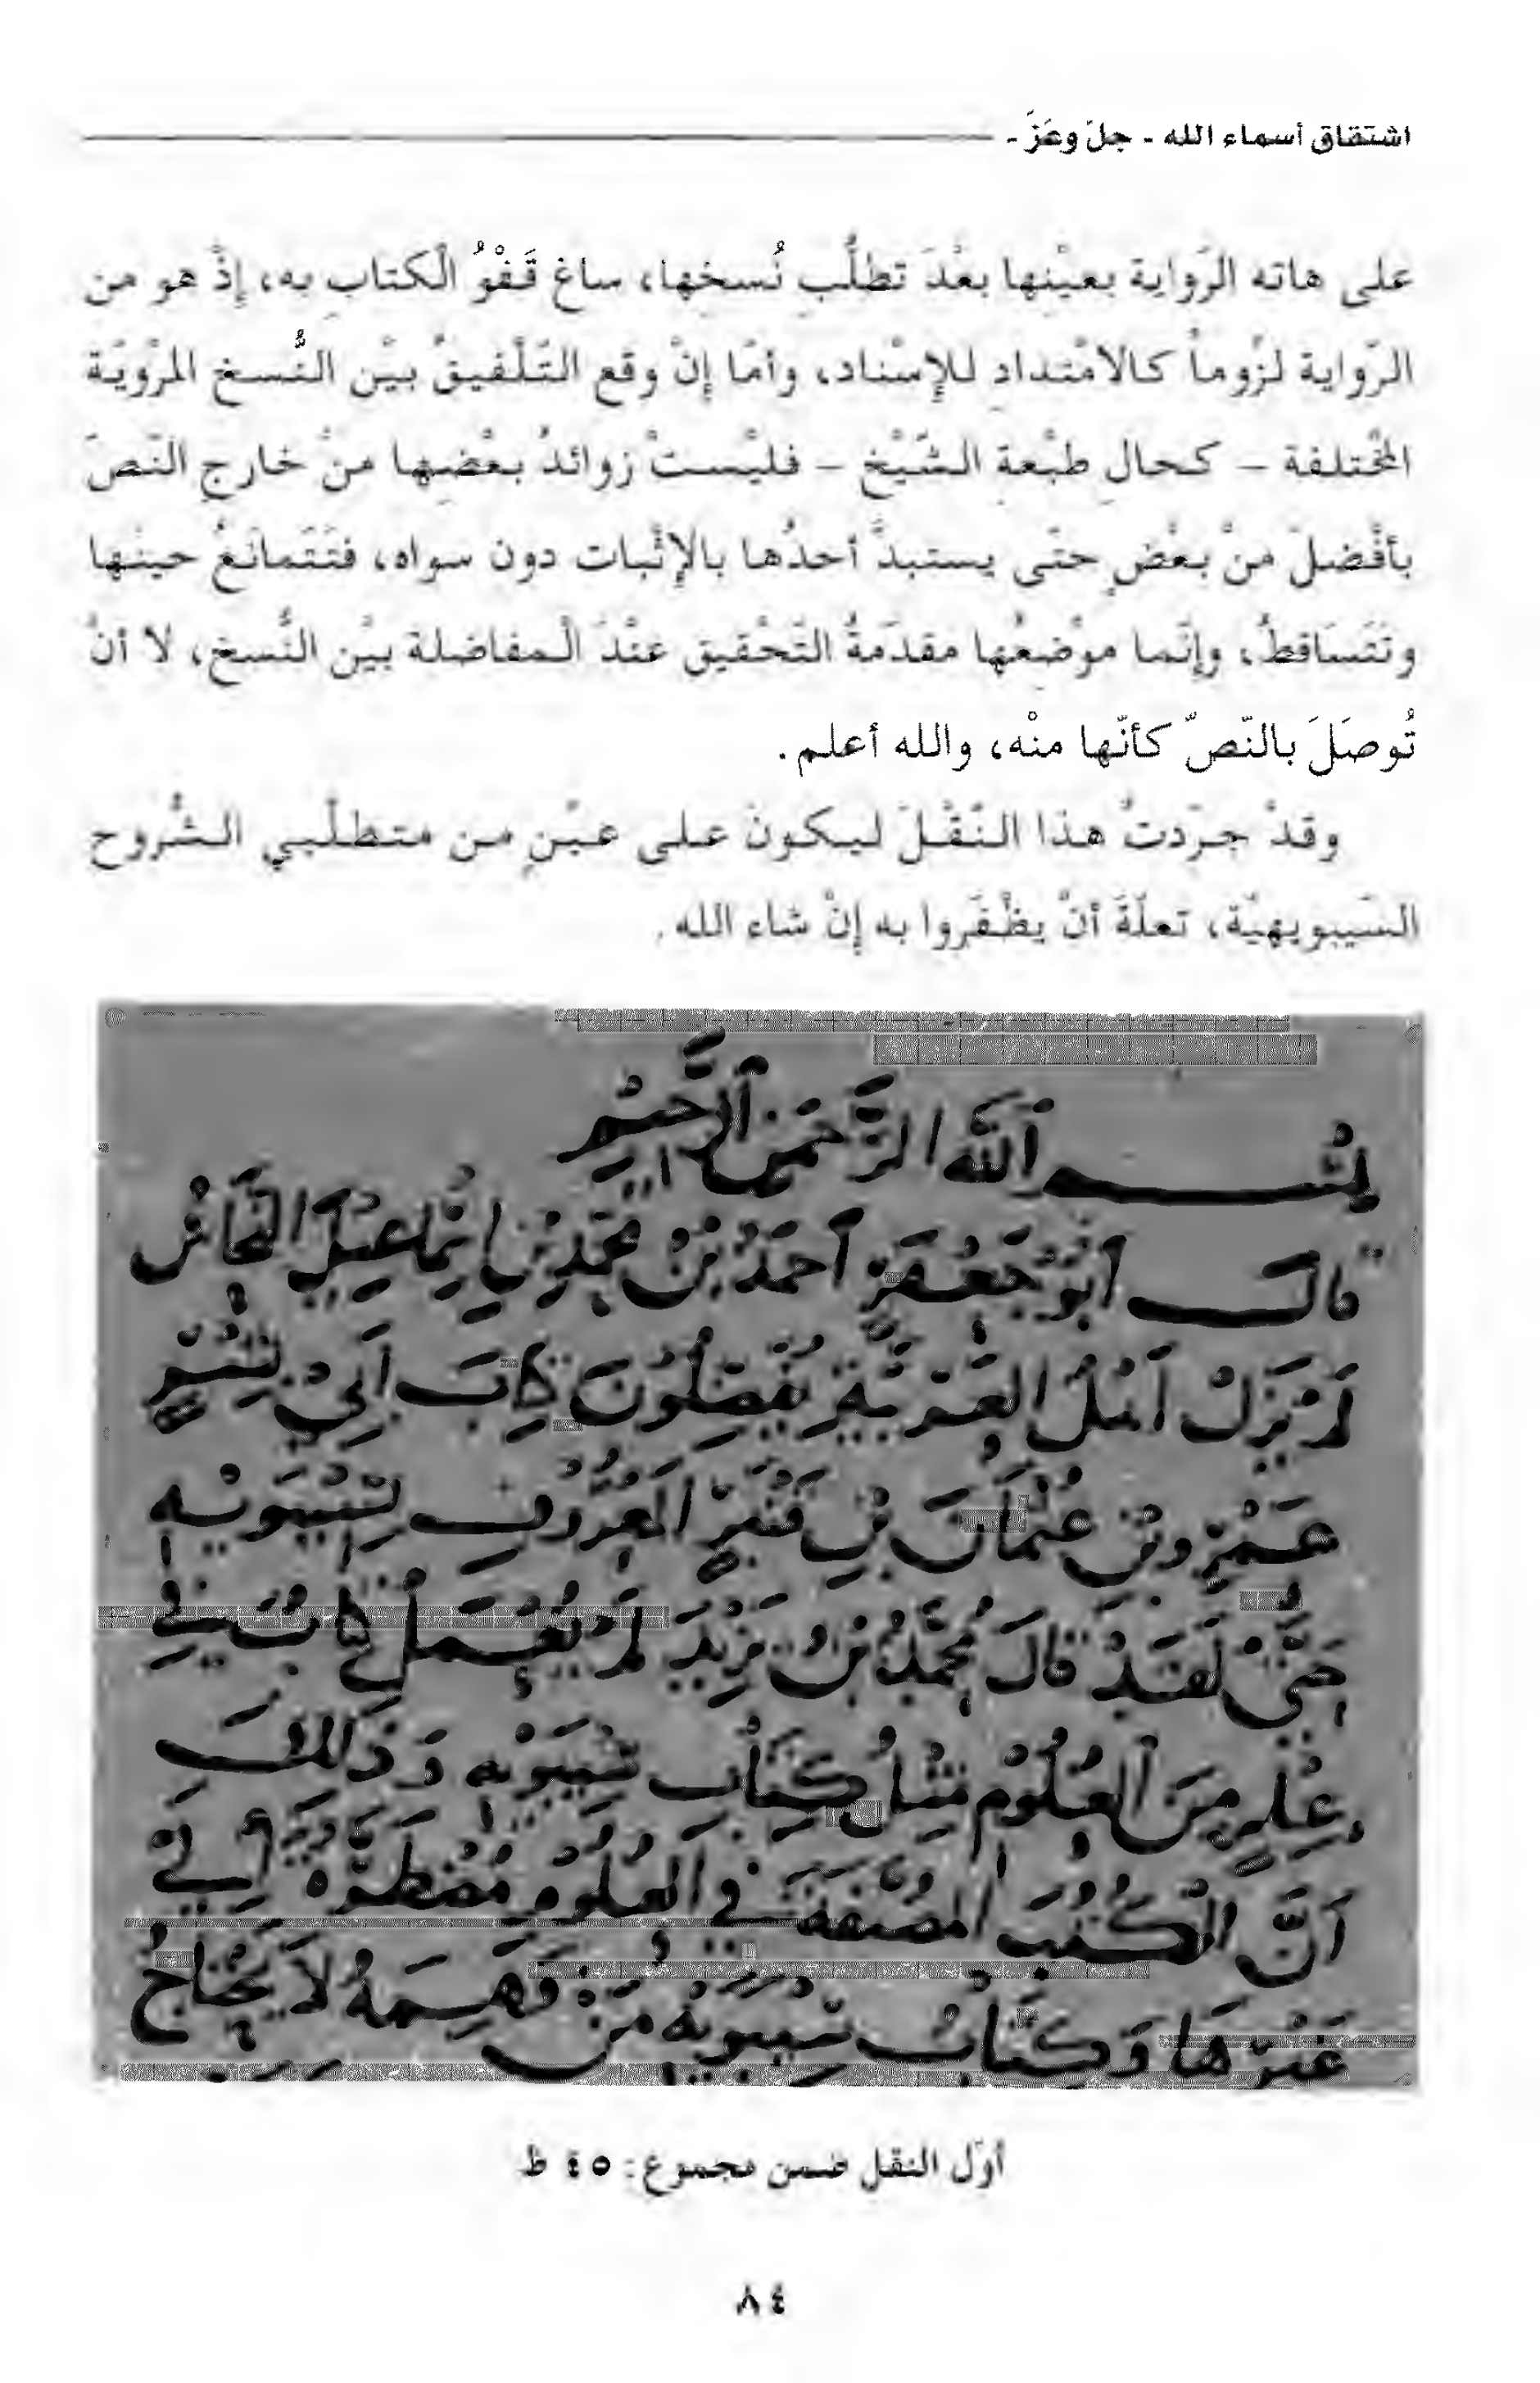 اشتقاق أسماء الله - جلّ وعَزّ -
على هاته الرّواية بعيْنها بعْدَ تطلُّبِ نُسخِها، ساغ قَفْوُ الْكتابِ به، إذْ هو من
الرّواية لزُوماً كالامْتدادِ للإسْناد، وأمّا إنْ وقع التّلْفيقُ بيْن النُّسخ المرْويّة
المخْتلفة – كحالِ طبْعةِ الشّيْخ – فليْستْ زوائدُ بعْضِها منْ خارجِ النّصّ
بأفْضلَ منْ بعْضٍ حتّى يستبدَّ أحدُها بالإثْبات دون سواه، فتَتَمانَعُ حينَها
وتَتَسَاقطُ، وإنّما موْضعُها مقدّمةُ التّحْقيق عنْدَ الْمفاضلة بيْن النُّسخ، لا أنْ
تُوصَلَ بالنّصّ كأنّها منْه، والله أعلم.
وقدْ جرّدتُ هذا النّقْلَ ليكونَ على عيْنٍ من متطلّبي الشُّروح
السّيبويهيّة، تعلّةَ أنْ يظْفَروا به إنْ شاء الله.
بِسْمِ ٱللَّهِ الرَّحْمَنِ ٱلرَّحِيمِ
قَالَ أَبُو جَعْفَرٍ أَحْمَدُ بْنُ مُحَمَّدِ بْنِ إِسْمَاعِيلَ النَّحَّاسُ
لَمْ يَزَلْ أَهْلُ العَرَبِيَّةِ يُفَضِّلُونَ كِتَابَ أَبِي بِشْرٍ
عَمْرِو بْنِ عُثْمَانَ بْنِ قَنْبَرٍ المَعْرُوفِ بِسِيبَوَيْهِ
حَتَّى لَقَدْ قَالَ مُحَمَّدُ بْنُ يَزِيدَ لَمْ يُعْمَلْ كِتَابٌ فِي
عِلْمٍ مِنَ العُلُومِ مِثْلُ كِتَابِ سِيبَوَيْهِ وَذَلِكَ
أَنَّ الْكُتُبَ المُصَنَّفَةَ فِي العُلُومِ مُضْطَرَّةٌ إِلَى
غَيْرِهَا وَكِتَابُ سِيبَوَيْهِ مَنْ فَهِمَهُ لاَ يَحْتَاجُ
أوّل النقل ضمن مجموع: ٤٥ ظ
٨٤